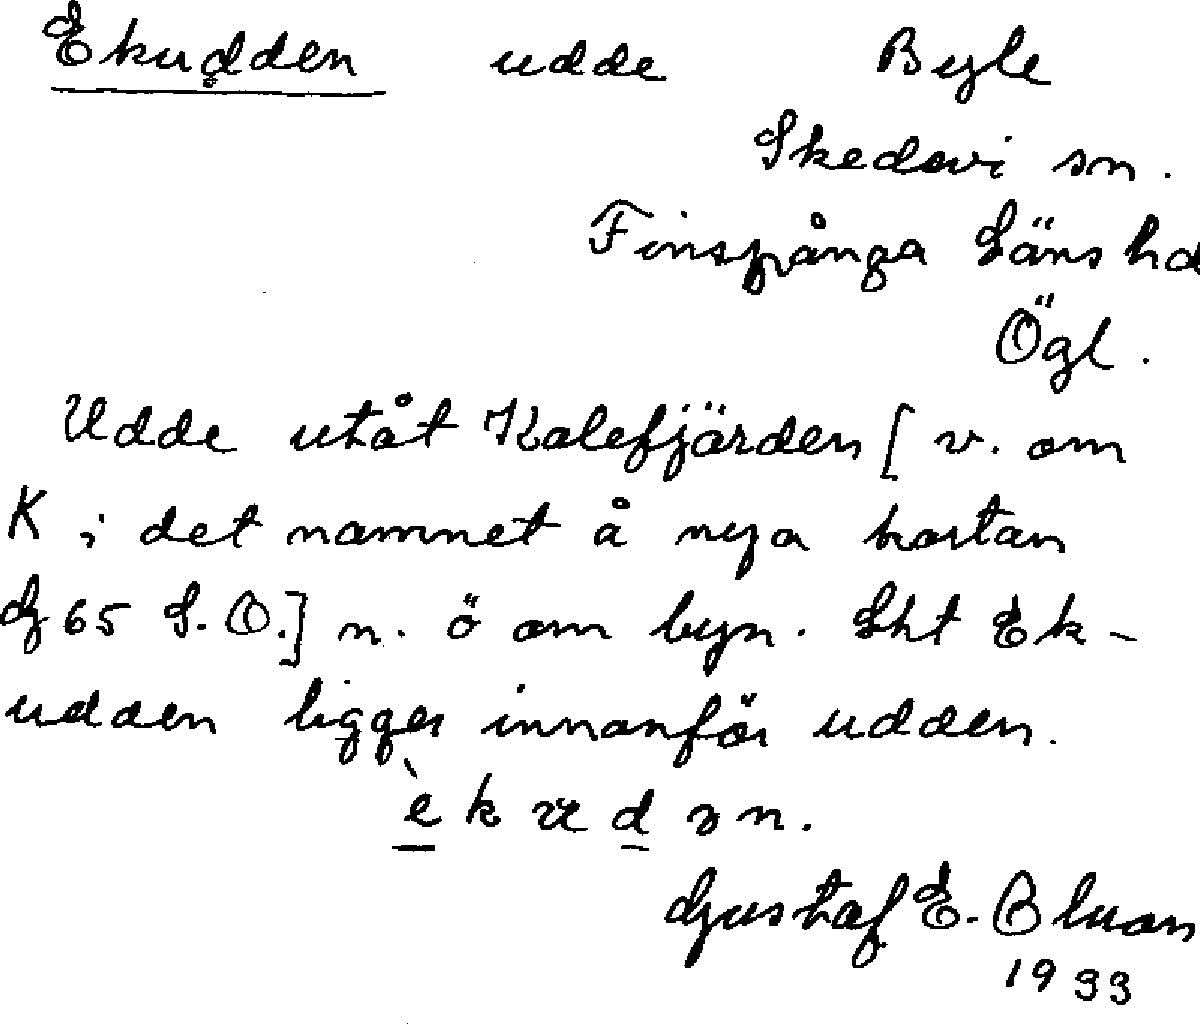 Ekudden udde Byle
Skedevi sn.
Finspånga Läns hd
Ögl.
Udde utåt Kalefjärden [ v. om
K i det namnet å nya kartan
G 65 S. O.] n. ö om byn. Lht Ek-
udden ligger innanför udden.
Gustaf E. Bluan
1933